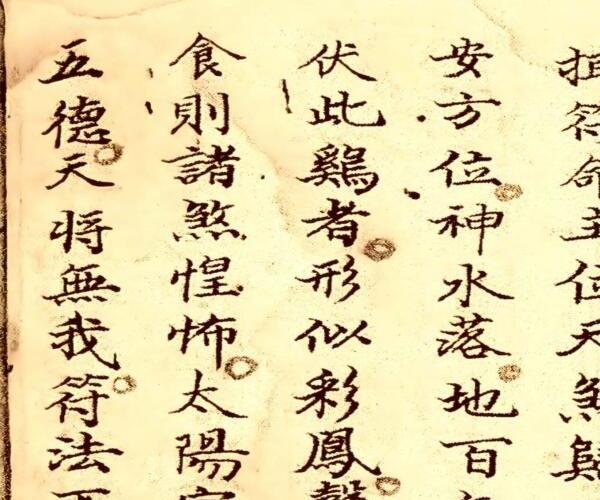 符命主位天煞
安方位神水落地百
伏此鷄者形似彩鳳
食則諸煞惶怖太陽
五德天将無我符法